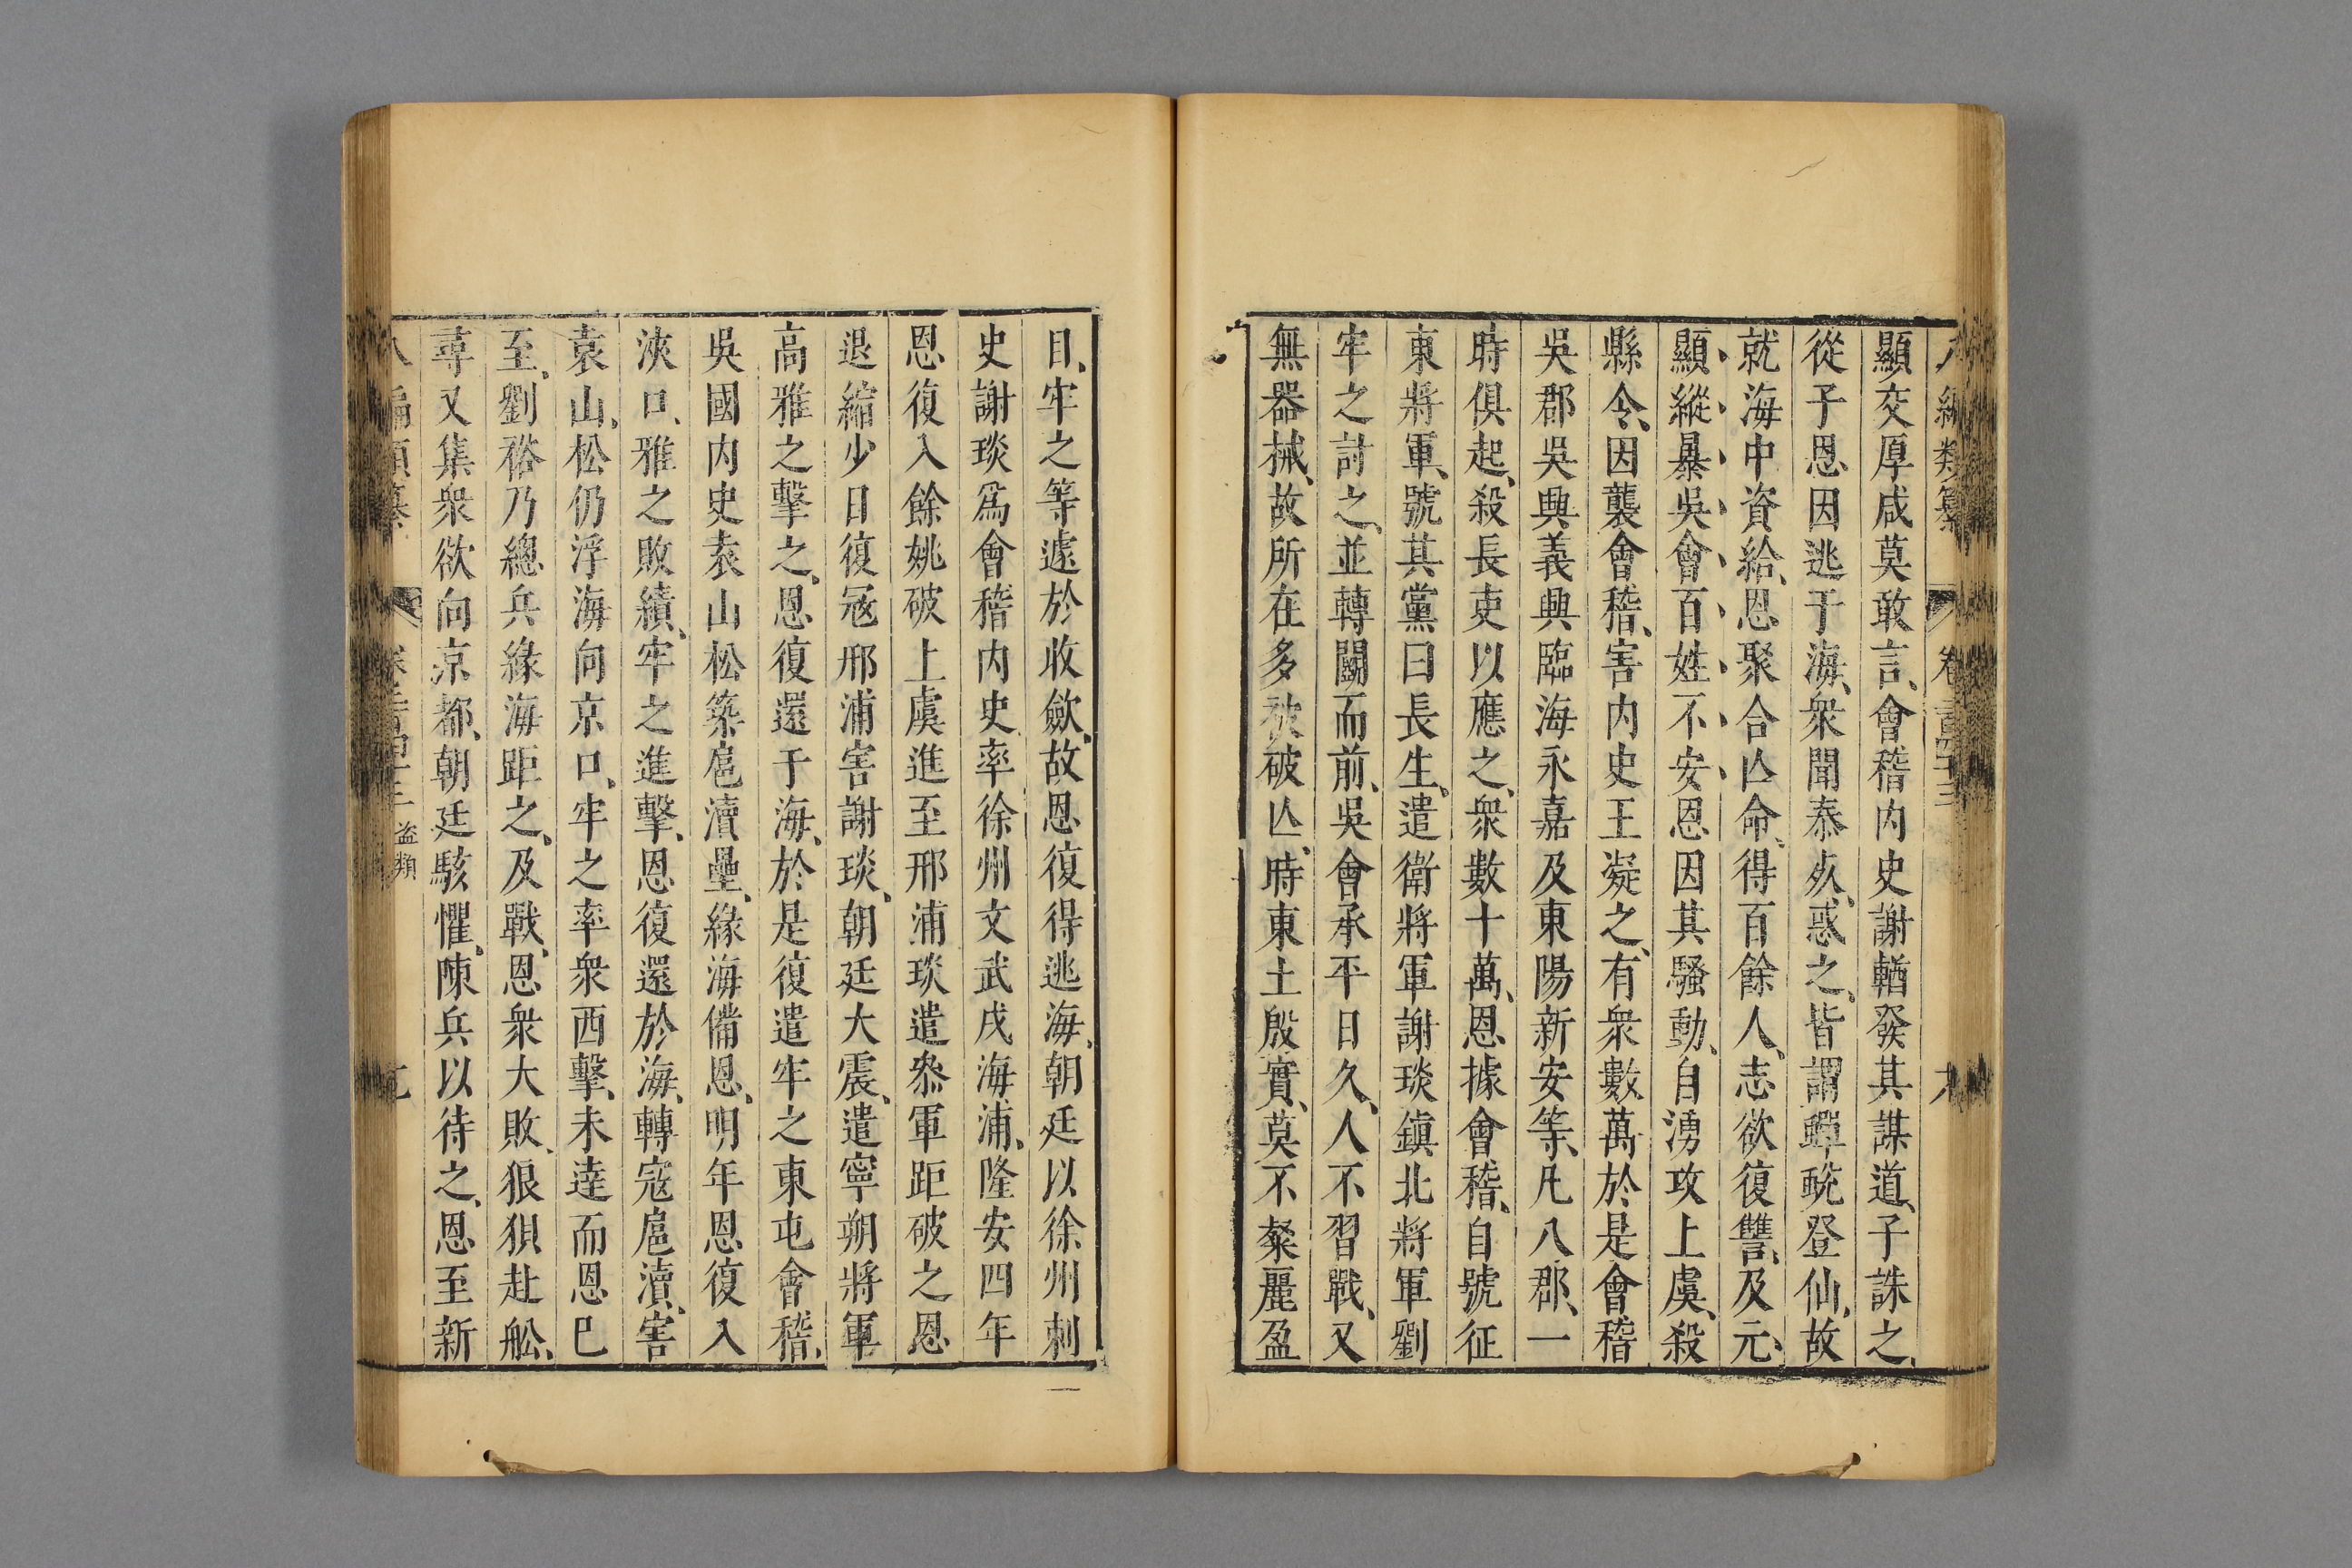 編類纂 卷
顯交厚咸莫敢言、會稽内史謝輶發其謀道、子誅之、
從子恩因逃于海、衆聞泰死、惑之、皆謂蟬蛻登仙、故
就海中資給、恩聚合亾命、得百餘人、志欲復讐、及元
顯縱暴吳會百姓不安恩因其騷動、自湧攻上虞、殺
縣令、因襲會稽、害内史王凝之、有衆數萬於是會稽
吳郡吳興義興臨海永嘉及東陽新安等、凡八郡、一
時俱起、殺長吏以應之、衆數十萬、恩據會稽、自號征
東將軍、號其黨曰長生、遣衛將軍謝琰鎮北將軍劉
牢之討之、並轉鬭而前、吳會承平日久、人不習戰、又
無器械、故所在多被破亾、時東土殷實、莫不粲麗盈
目、牢之等遽於收斂、故恩復得逃海、朝廷以徐州刺
史謝琰爲會稽内史、率徐州文武戍海浦、隆安四年
恩復入餘姚破上虞進至邢浦琰遣叅軍距破之恩
退縮少日復冦邢浦害謝琰、朝廷大震、遣寧朔將軍
高雅之擊之、恩復還于海、於是復遣牢之東屯會稽、
吳國内史袁山松築扈瀆壘、緣海備恩、明年恩復入
浹口、雅之敗績、牢之進擊、恩復還於海、轉寇扈瀆、害
袁山松、仍浮海向京口、牢之率衆西擊、未達而恩巳
至、劉裕乃總兵緣海距之、及戰、恩衆大敗、狼狽赴舩、
尋又集衆欲向京都、朝廷駭懼、陳兵以待之、恩至新
盗類